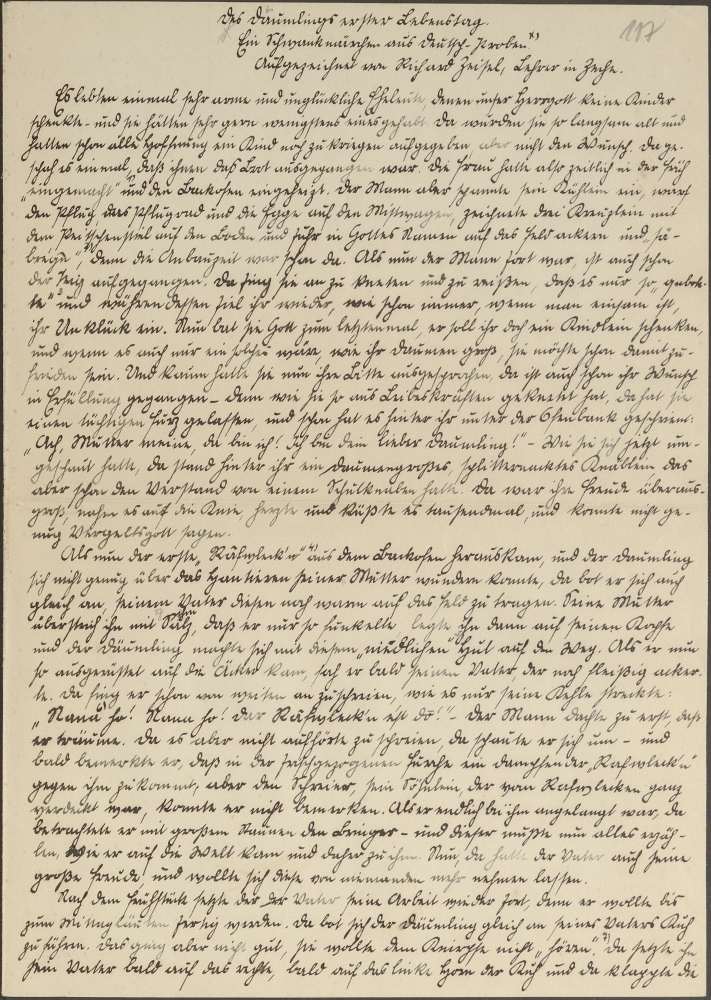 107
Des Däumlings erster Lebenstag.
Ein Schwankmärchen aus Deutsch-Proben*)
Aufgezeichnet von Richard Zeisel, Lehrer in Zeche.
Es lebten einmal sehr arme und unglückliche Eheleute, denen unser Herrgott keine Kinder
schenkte - und sie hätten sehr gern wenigstens eines gehabt. Da wurden sie so langsam alt und
hatten schon alle Hoffnung ein Kind noch zu kriegen aufgegeben aber nicht den Wunsch. Da ge-
schah es einmal, daß ihnen das Brot ausgegangen war. Die Frau hatte also zeitlich in der Früh
"eingemacht" und den Backofen eingeheizt. Der Mann aber spannte sein Kühlein ein, warf
den Pflug, das Pflugrad und die Egge auf den Mistwagen, zeichnete drei Kreuzlein mit
dem Peitschenstiel auf den Boden und fuhr in Gottes Namen auf das Feld ackern und
denn die Anbauzeit war schon da. Als nun der Mann fort war, ist auch schon
der Teig aufgegangen. Da fing sie an zu kneten und zu reißen, daß es nur so
und währenddessen fiel ihr wieder, wie schon immer, wenn man einsam ist,
ihr Unklück ein. Nun bat sie Gott zum letztenmal, er soll ihr doch ein Kindlein schenken,
und wenn es auch nur ein solches wäre, wie ihr Daumen groß, sie möchte schon damit zu-
frieden sein. Und kaum hatte sie nun ihre Bitte ausgesprochen, da ist auch schon ihr Wunsch
in Erfüllung gegangen - denn wie sie so aus Leibeskräften geknetet hat, da hat sie
einen tüchtigen Furz gelassen, und schon hat es hinter ihr unter der Ofenbank geschrien:
"Ach, Mutter meine, da bin ich! Ich bin dein lieber Daumling!" - Wie sie sich jetzt um-
geschaut hatte, da stand hinter ihr ein daumengroßes, splitternacktes Knäblein das
aber schon den Verstand von einem Schulknaben hatte. Da war ihre Freude überaus-
groß, nahm es auf die Knie, herzte und küßte es tausendmal, und konnte nicht ge-
nug Vergeltsgott sagen.
Als nun der erste "Räfwleck'n" aus dem Backofen herauskam, und der Daumling
sich nicht genug über das Hantieren seiner Mutter wundern konnte, da bot er sich auch
gleich an, seinem Vater diesen noch warm auf das Feld zu tragen. Seine Mutter
überstrich ihn mit Salz, daß er nur so funkelte legte ihn dann auf seinen Kopfe
und der Däumling machte sich mit diesem "niedlichen" Hut auf den Weg. Als er nun
so ausgerüstet auf die Äcker kam, sah er bald seinen Vater, der noch fleißig acker-
te. Da fing er schon von weiten an zu schreien, wie es nur seine Kehle streckte:
"Nana ho! Nana ho! Dar Räfwleck'n éßt dò!" - Der Mann dachte zu erst, daß
er träume. Da es aber nicht aufhörte zu schreien, da schaute er sich um - und
bald bemerkte er, daß in der frischgezogenen Furche ein dampfender "Räfwleck'n"
gegen ihm zukommt, aber den Schreier, sein Söhnlein, der vom Räfwlecken ganz
verdeckt war, konnte er nicht bemerken. Als er endlich bei ihm angelangt war, da
betrachtete er mit großem Staunen den Bringer - und dieser mußte nun alles erzäh-
len, wie er auf die Welt kam und daher zu ihm. Nun, da hatte der Vater auch seine
große Freude und wollte sich diese von niemanden mehr nehmen lassen.
Nach dem Frühstück setzte der der Vater seine Arbeit wieder fort, denn er wollte bis
zum Mittagläuten fertig werden. Da bot sich der Däumling gleich an seines Vaters Kuh
zu führen. Das ging aber nicht gut, sie wollte dem Knirpse nicht "hören". Da setzte ihn
sein Vater bald auf das rechte, bald auf das linke Horn der Kuh und da klappte die